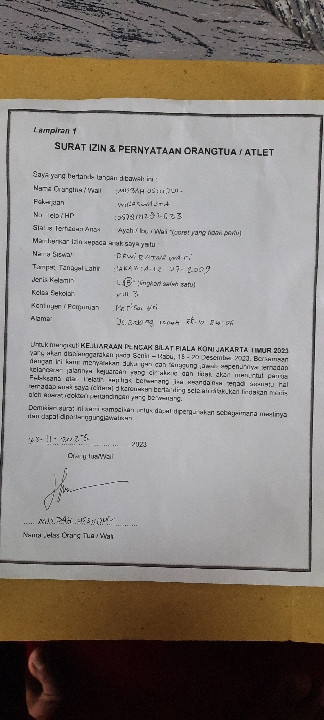 Lampiran 1
SURAT IZIN & PERNYATAAN ORANGTUA / ATLET
Saya yang bertanda tangan dibawah ini :
Nama Orangtua / Wali :
Pekerjaan : WIRASWASTA
No. Telp / HP :
Status Terhadap Anak : Ayah / Ibu / Wali *(coret yang tidak perlu)
Memberikan izin kepada anak saya yaitu :
Nama Siswa :
Tempat, Tanggal Lahir : JAKARTA 2009
Jenis Kelamin : L / P *(lingkari salah satu)
Kelas Sekolah :
Kontingen / Perguruan :
Alamat :
Untuk mengikuti KEJUARAAN PENCAK SILAT PIALA KONI JAKARTA TIMUR 2023
yang akan diselenggarakan pada Senin – Rabu, 18 - 20 Desember 2023. Bersamaan
dengan ini kami menyatakan dukungan dan tanggung jawab sepenuhnya terhadap
kelancaran jalannya kejuaraan yang dimaksud dan tidak akan menuntut panitia
Pelaksana atau Pelatih sepihak berwenang jika seandainya terjadi sesuatu hal
terhadap anak saya (cidera) dikarenakan bertanding setelah dilakukan tindakan medis
oleh aparat (dokter) pertandingan yang berwenang.
Demikian surat ini kami sampaikan untuk dapat dipergunakan sebagaimana mestinya
dan dapat dipertanggungjawabkan.
2023
Orang tua/Wali
Nama Jelas Orang Tua / Wali